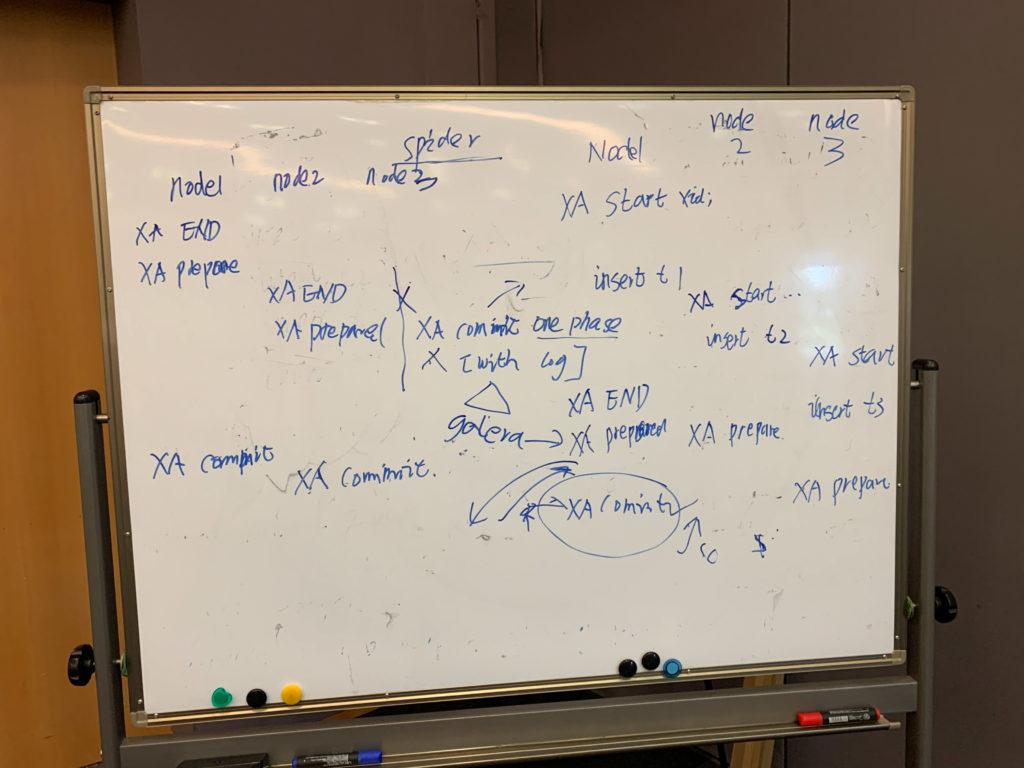 spider
node1 node2 node3
XA END
XA prepare
XA END
XA prepare
XA commit one phase
X [with log]
galera
XA commit
XA commit.
Node1 node 2 node 3
XA start xid;
insert t1
XA start...
insert t2
XA start
insert t3
XA END
XA prepared XA prepare
XA prepare
XA commit